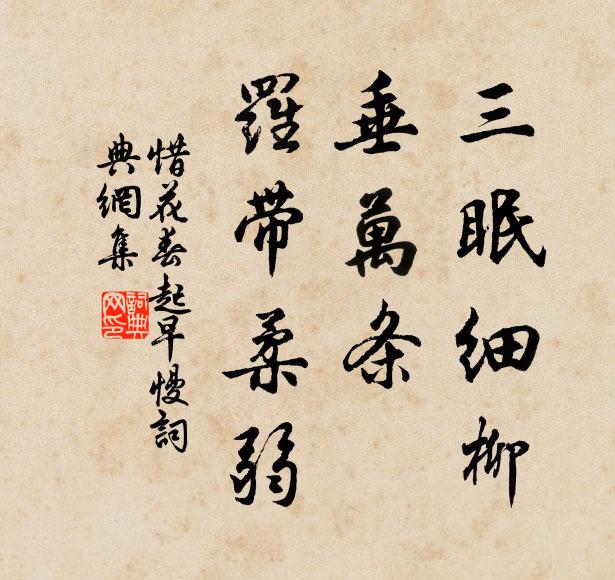 三眠细柳
垂萬条
羅帶柔弱
惜花春起早慢詞
典網集
詞典
网印